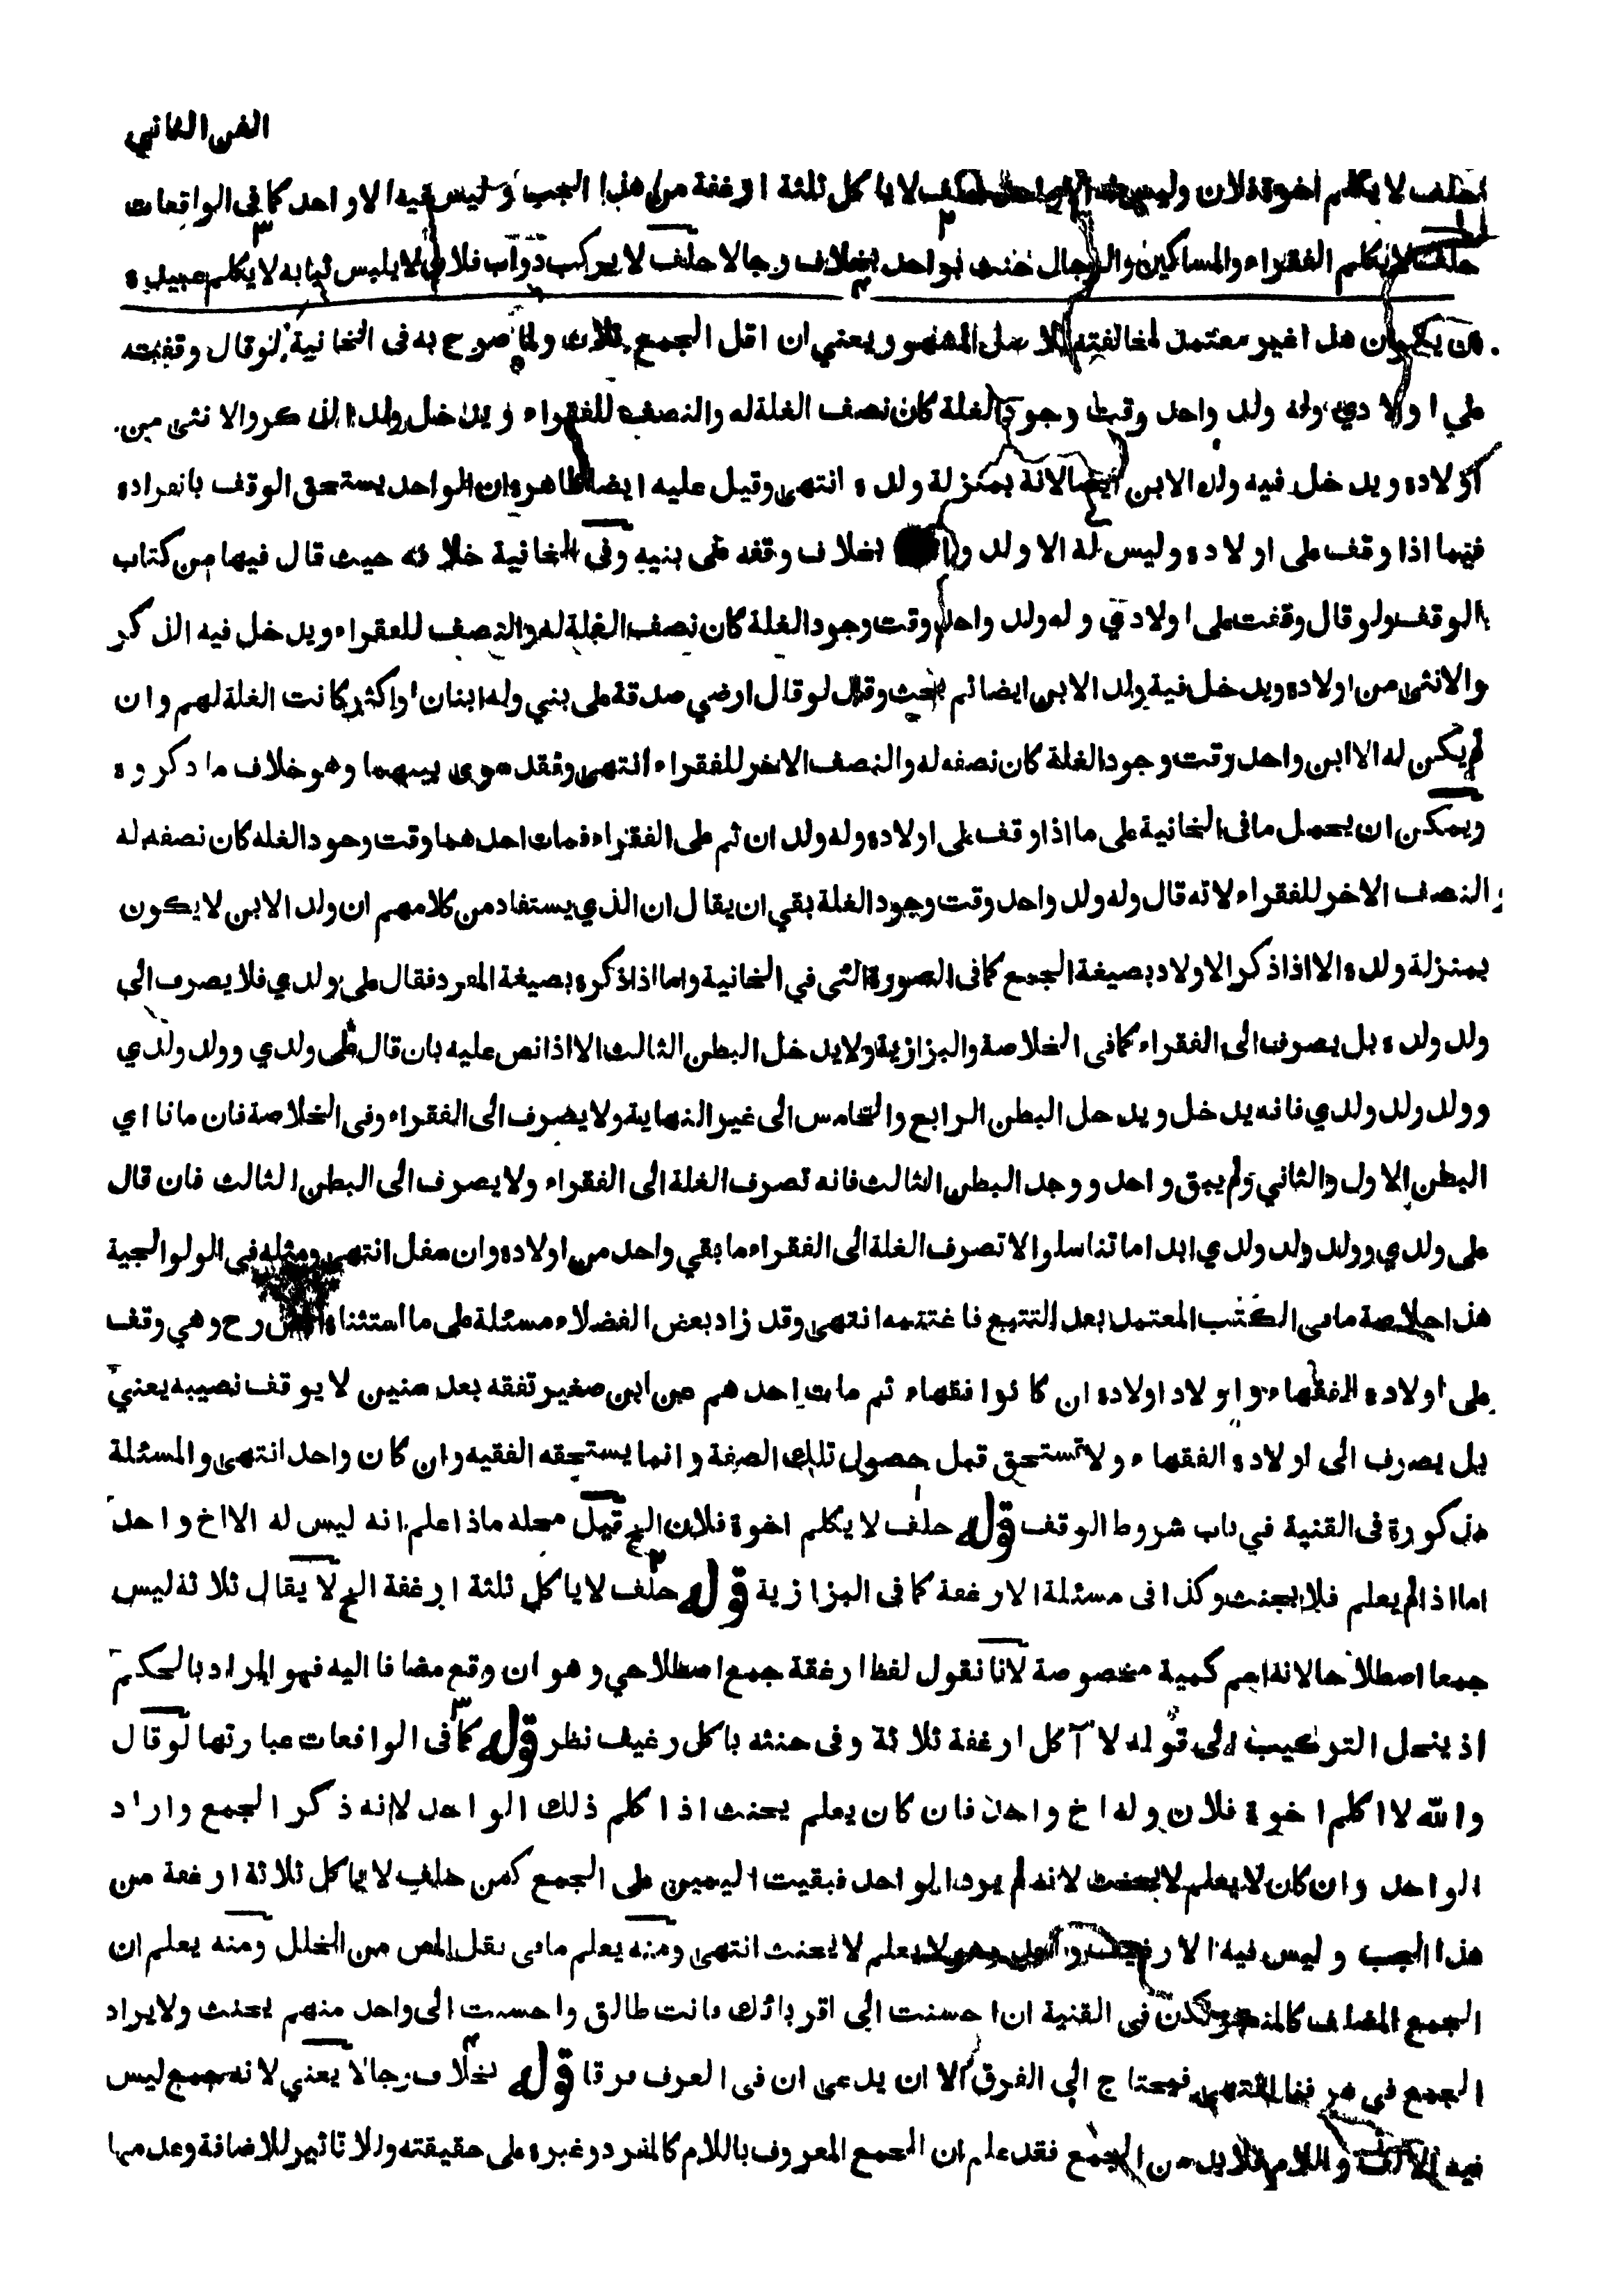 الفن الثاني
حلف لا يكلم اخوة فلان وليس له الا واحد حلف لا ياكل ثلثة ارغفة من هذا الجب وليس فيه الا واحد كما فى الواقعات
حلف لا يكلم الفقراء والمساكين والرجال حنث بواحد بخلاف رجالا حلف لا يركب دواب فلان لا يلبس ثيابه لا يكلم عبيده
يكون هذا غير معتمد لمخالفته الاصل المشهور يعني ان اقل الجمع ثلاث ولما صرح به فى الخانية لو قال وقفت
على اولادي وله ولد واحد وقت وجود الغلة كان نصف الغلة له والنصف للفقراء ويدخل ولده الذكر والانثى من
اولاده ويدخل فيه ولد الابن ايضا لانة بمنزلة ولده انتهى وقيل عليه ايضا ظاهره ان الواحد يستحق الوقف بانفراده
فيما اذا وقف على اولاده وليس له الا ولد بخلاف وقفه على بنيه وفى الخانية خلافه حيث قال فيها من كتاب
الوقف ولو قال وقفت على اولادي وله ولد واحد وقت وجود الغلة كان نصف الغلة له والنصف للفقراء ويدخل فيه الذكر
والانثى من اولاده ويدخل فية ولد الابن ايضا ثم بحث وقال لو قال ارضي صدقة على بني وله ابنان او اكثر كانت الغلة لهم وان
لم يكن له الا ابن واحد وقت وجود الغلة كان نصفه له والنصف الاخر للفقراء انتهى وفقد سوى بينهما وهو خلاف ما ذكروه
ويمكن ان يحمل ما فى الخانية على ما اذا وقف على اولاده وله ولدان ثم على الفقراء فمات احدهما وقت وجود الغله كان نصفه له
والنصف الاخر للفقراء لانه قال وله ولد واحد وقت وجود الغلة بقي ان يقال ان الذي يستفاد من كلامهم ان ولد الابن لا يكون
بمنزلة ولده الا اذا ذكر الاولاد بصيغة الجمع كما فى الصورة التى في الخانية واما اذا ذكره بصيغة المفرد فقال على ولدي فلا يصرف الى
ولد ولده بل يصرف الى الفقراء كما فى الخلاصة والبزازية ولا يدخل البطن الثالث الا اذا نص عليه بان قال على ولدي وولد ولدي
وولد ولد ولدي فانه يدخل ويدخل البطن الرابع والخامس الى غير النهاية ولا يصرف الى الفقراء وفى الخلاصة فان ماتا اي
البطن الاول والثاني ولم يبق واحد ووجد البطن الثالث فانه تصرف الغلة الى الفقراء ولا يصرف الى البطن الثالث فان قال
على ولدي وولد ولد ولدي ابدا ما تناسلوا لا تصرف الغلة الى الفقراء ما بقي واحد من اولاده وان سفل انتهى ومثله فى الولوالجية
هذا خلاصة ما فى الكتب المعتمدة بعد التتبع فاغتنمه انتهى وقد زاد بعض الفضلاء مسئلة على ما استثناه المص رح وهي وقف
على اولاده الفقهاء واولاد اولاده ان كانوا فقهاء ثم مات احدهم من ابن صغير تفقه بعد سنين لا يوقف نصيبه يعني
بل يصرف الى اولاده الفقهاء ولا تستحق قبل حصول تلك الصفة وانما يستحقه الفقيه وان كان واحد انتهى والمسئلة
مذكورة فى القنية في باب شروط الوقف قوله حلف لا يكلم اخوة فلان الخ قيل محله ماذا علم انه ليس له الا اخ واحد
اما اذا لم يعلم فلا يحنث وكذا فى مسئلة الارغفة كما فى البزازية قوله حلف لا ياكل ثلثة ارغفة الخ لا يقال ثلاثة ليس
جمعا اصطلاحا لانه اسم كمية مخصوصة لانا نقول لفظ ارغفة جمع اصطلاحي وهو ان وقع مضافا اليه فهو المراد بالحكم
اذ ينحل التركيب الى قوله لا آكل ارغفة ثلاثة وفى حنثه باكل رغيف نظر قوله كما فى الواقعات عبارتها لو قال
والله لا اكلم اخوة فلان وله اخ واحد فان كان يعلم يحنث اذا كلم ذلك الواحد لانه ذكر الجمع واراد
الواحد وان كان لا يعلم لا يحنث لانه لم يرد الواحد فبقيت اليمين على الجمع كمن حلف لا ياكل ثلاثة ارغفة من
هذا الجب وليس فيه الا رغيف واحد وهو لا يعلم لا يحنث انتهى ومنه يعلم ما فى نقل المص من الخلل ومنه يعلم ان
الجمع المضاف كالمنكر لكن فى القنية ان احسنت الى اقربائك فانت طالق واحسنت الى واحد منهم يحنث ولا يراد
الجمع في عرفنا انتهى فيحتاج الى الفرق الا ان يدعى ان فى العرف فرقا قوله بخلاف رجالا يعني لانه جمع ليس
فيه الالف واللام فلا بد من الجمع فقد علم ان الجمع المعروف باللام كالمفرد وغيره على حقيقته ولا تاثير للاضافة وعدمها